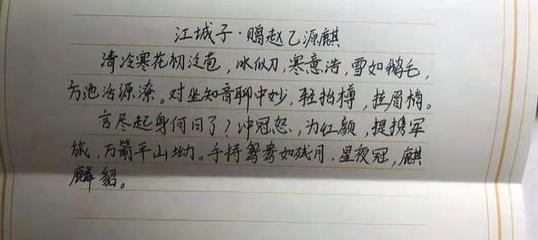 江城子·赠赵乙源麒
清冷寒花初泛苞,冰似刀,寒意浩,雪如鹅毛,
方池泊源潦。对坐知音聊中妙,轻抬樽,挂眉梢。
言尽起身何日了?冲冠怒,为红颜,提携军
旅,万箭平山坳。手持鸳鸯如残月,星夜冠,麒
麟貂。